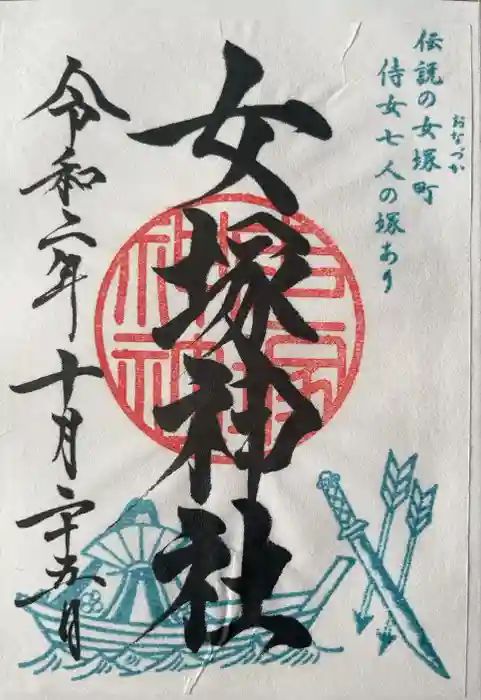 伝説の女塚町
おなづか
侍女七人の塚あり
女塚神社
令和二年十月二十五日